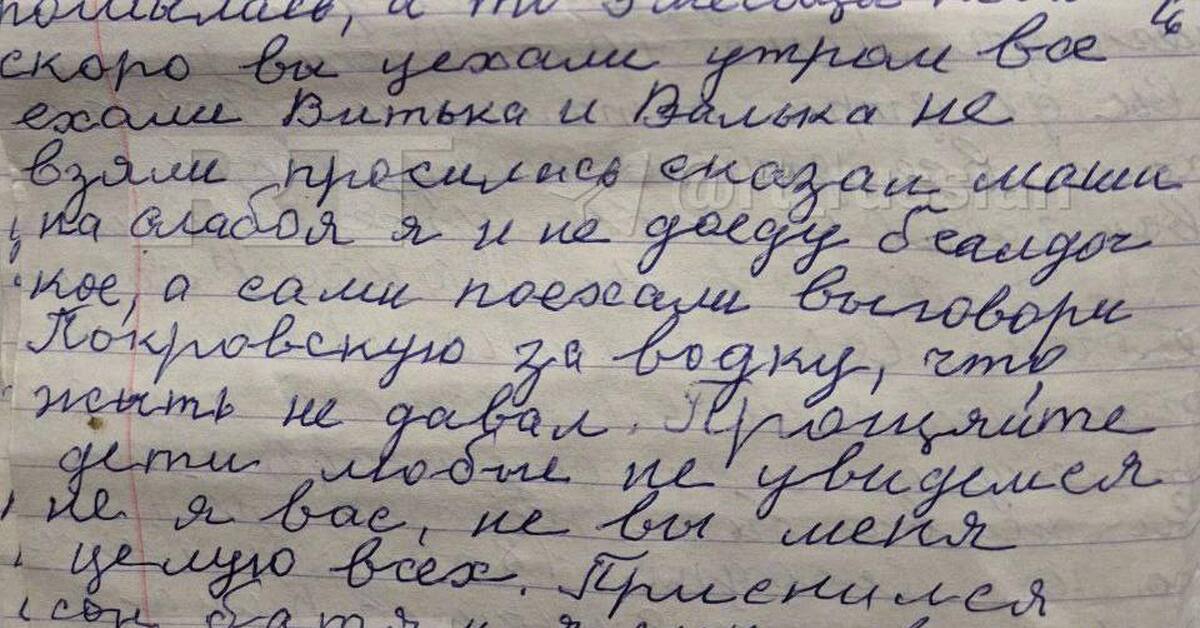 скоро вы уехали утром все
ехали Витька и Валька не
взяли просилась сказал маши
на слабоя я и не доеду
кое, а сами поехали выговори
Покровскую за водку, что
жыть не давал. Прощяйте
дети любые не увидемся
не я вас, не вы меня
целую всех. Приснился
сон батя и я